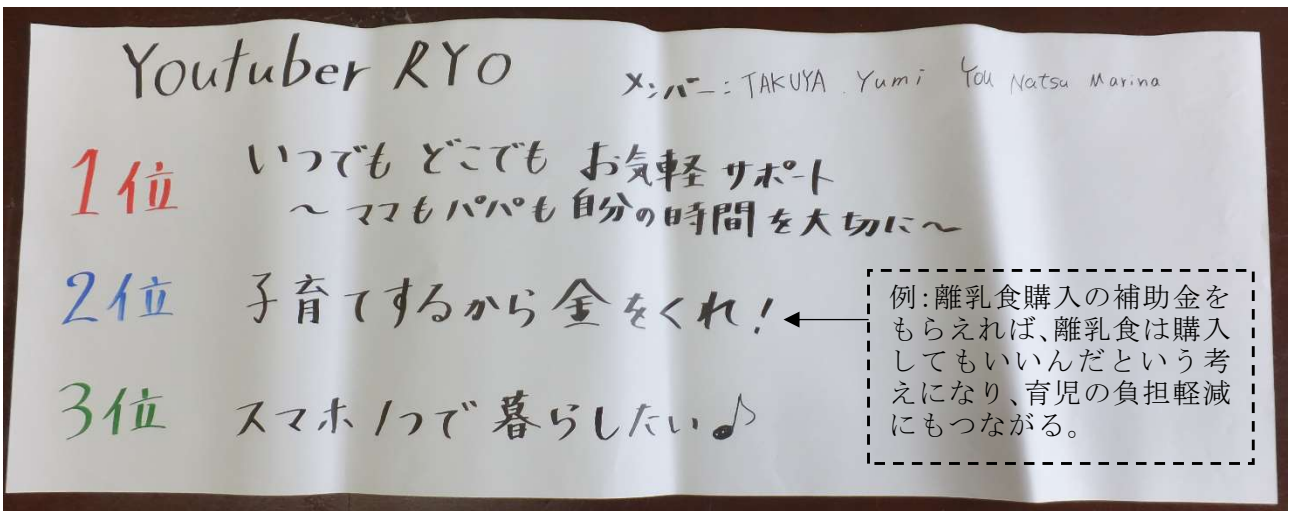 Youtuber RYO
メンバー:TAKUYA. Yumi You Natsu Marina
1位 いつでも どこでも お気軽 サポート
~ ママもパパも自分の時間を大切に~
2位 子育てするから金をくれ!
3位 スマホ1つで暮らしたい♪
例:離乳食購入の補助金を
もらえれば、離乳食は購入
してもいいんだという考
えになり、育児の負担軽減
にもつながる。